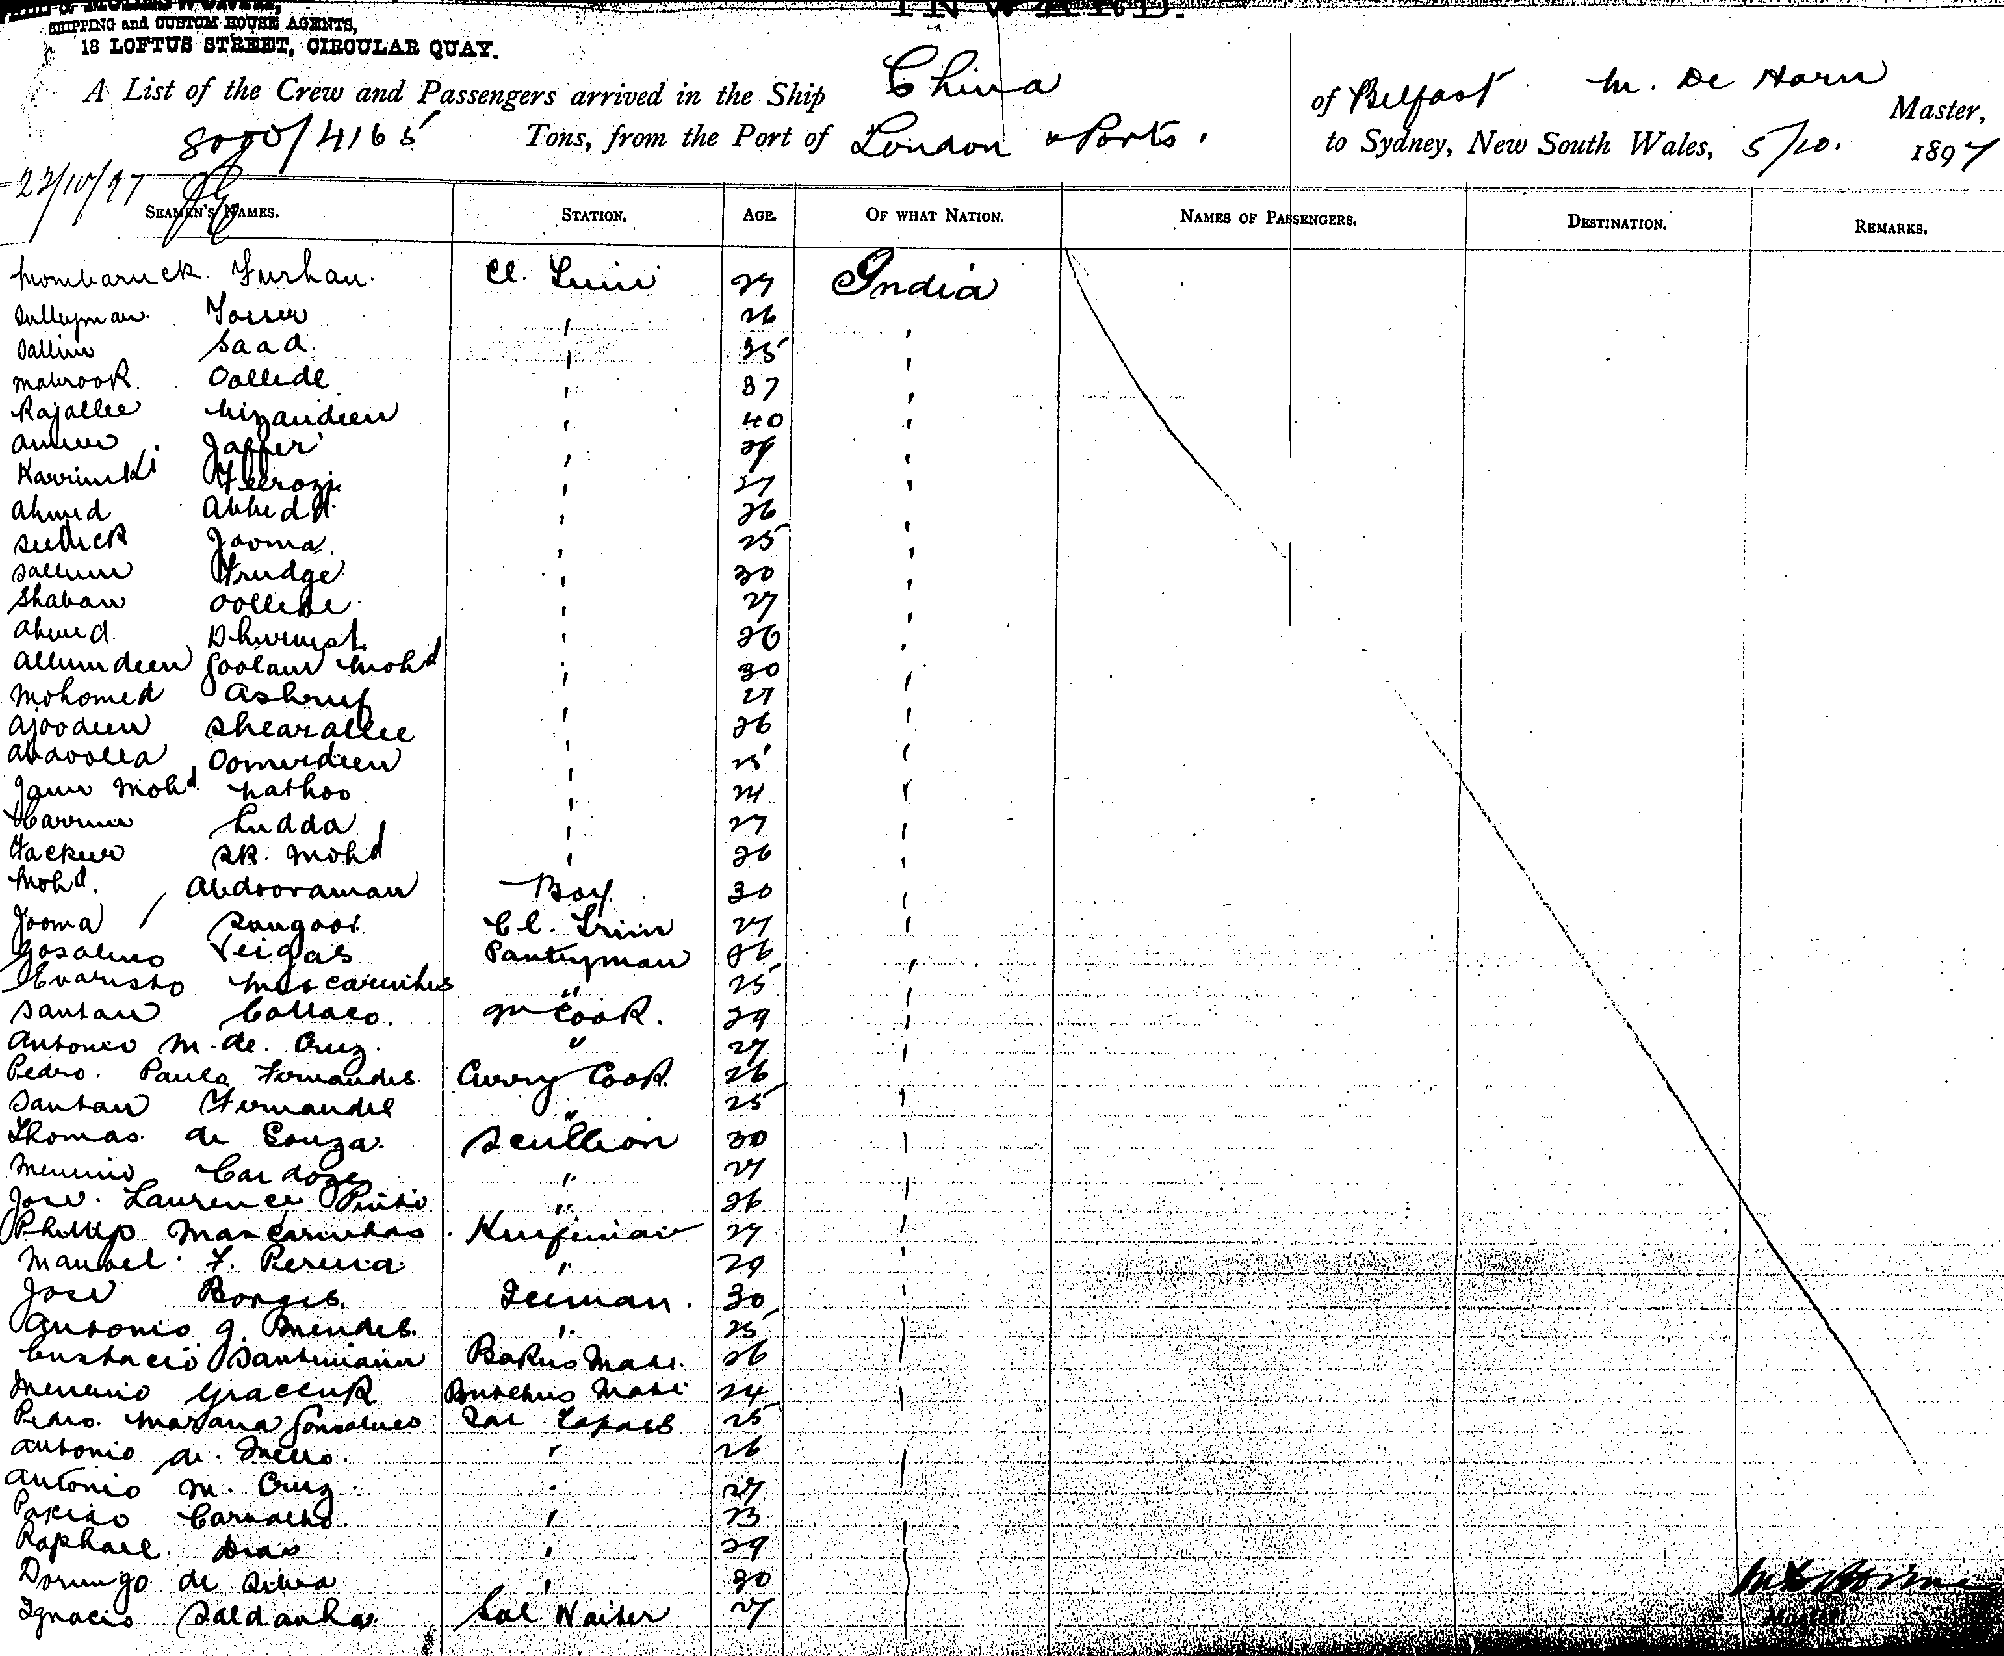 SHIPPING and CUSTOM HOUSE AGENTS,
18 LOFTUS STREET, CIRCULAR QUAY.
INWARD.
A List of the Crew and Passengers arrived in the Ship China of Belfast M. De Horn Master,
8000/4165 Tons, from the Port of London & Ports. to Sydney, New South Wales, 5/10. 1897
23/10/97
SEAMEN'S NAMES. STATION. AGE. OF WHAT NATION. NAMES OF PASSENGERS. DESTINATION. REMARKS.
Mombaruck Furhan. Cl. Trim 27 India
Sulleyman 26 "
Sallim Saad. 25 "
Mabrook Oollede " 37 "
Rajallee Nizamdeen " 40 "
Jaffer " 29 "
Feerozi " 27 "
Ahmed Abbedd " 26 "
Jooma. " 25 "
Sallum Frudge " 30 "
Shaban Oollede " 27 "
Ahmed " 26 "
Allumdeen Goolam Mohd " 30 "
Mohomed Ashruf " 27 "
Ajoodeen Shearallee " 26 "
Abdoolla Oomerdeen " 25 "
Jann Mohd Nathoo " 24 "
Karrim Ludda " 27 "
Sk. Mohd " 26 "
Mohd. Abdooraman Boy 30 "
Jooma Sangoor Cl. Trim 27 "
Rosalino Veigas Pantryman 26 "
Evaristo Mascarenhas " 25 "
Santan Collaco. Cook. 29 "
Antonio M. de. Cruz " 27 "
Pedro. Paulo Fernandes Curry Cook. 26 "
Santan Fernandes " 25 "
Thomas de Souza Scullion 30 "
Menino Cardoze " 27 "
Jose. Laurence Pinto " 26 "
Phillip Mascarenhas Knifeman 27 "
Manoel F. Pereira " 29 "
Jose Borges Teeman. 30 "
Antonio G. Mendes " 25 "
Custacio Bakers Mate. 26 "
Menino Gracack Butchers Mate 24 "
Pedro Mariana Gonsalves 25
Antonio de. Mello. " 26 "
Antonio M. Cruz " 27
Carvalho. " 23 "
Raphael Dias " 29
Domingo de Silva " 30
Ignacio Saldanha Sal Waiter 27
Master